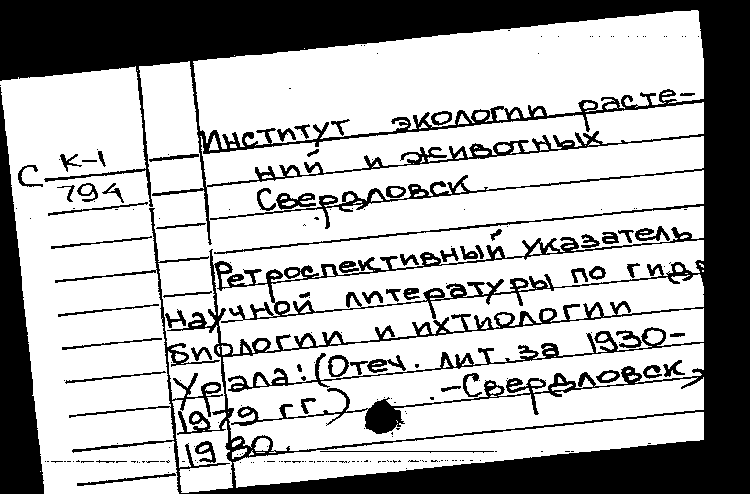 Институт экологии расте-
С К-1
794
ний и животных.
Свердловск.
Ретроспективный указатель
научной литературы по гидр
биологии и ихтиологии
Урала: (Отеч. лит. за 1930-
1979 гг.) .-Свердловск,
1980.